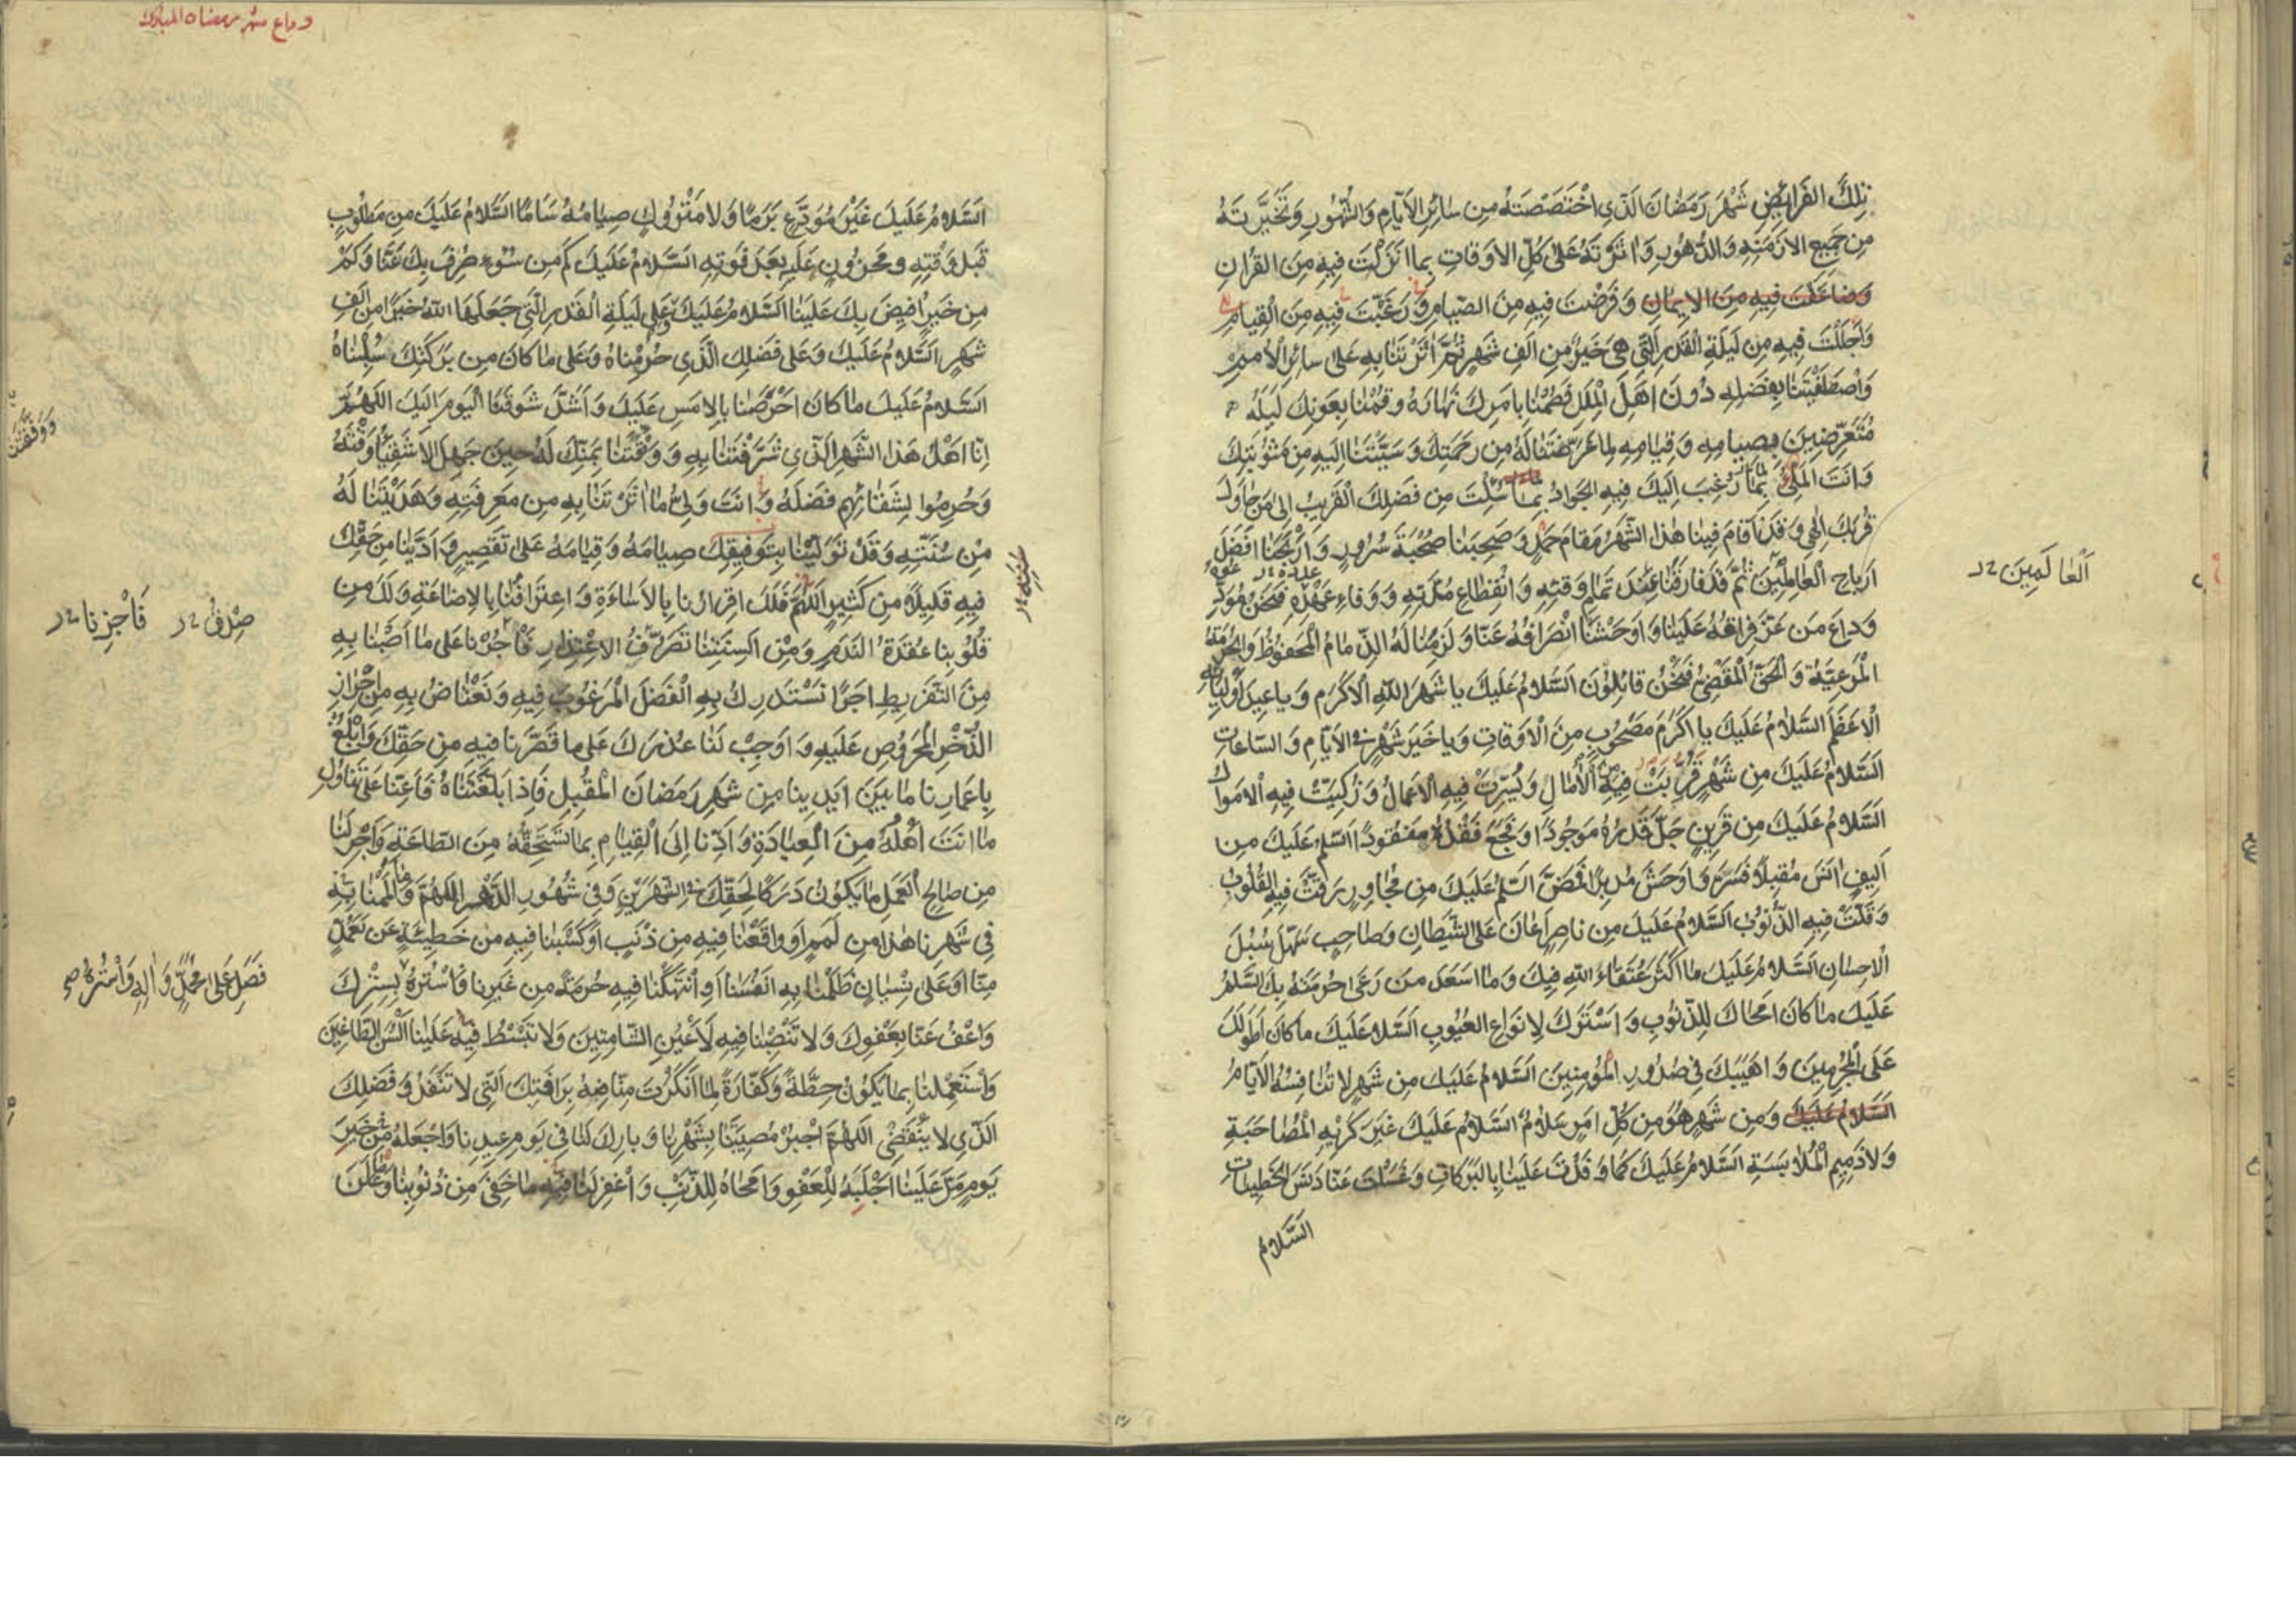 تِلْكَ الفَرائِضِ شَهْرَ رَمَضانَ الَّذِي اخْتَصَصْتَهُ مِن سائِرِ الأَيّامِ وَالشُّهُورِ وَتَخَيَّرْتَهُ
مِن جَمِيعِ الازمِنَةِ وَالدُّهُورِ وَاثَرْتَهُ عَلى كُلِّ الاَوقاتِ بِما انزَلْتَ فِيهِ مِنَ القُرانِ
وَضاعَفْتَ فِيهِ مِنَ الايمانِ وَفَرَضْتَ فِيهِ مِنَ الصِّيامِ وَرَغَّبْتَ فِيهِ مِنَ القِيامِ
وَاَجْلَلْتَ فِيهِ مِن لَيلَةِ القَدرِ الَّتِي هِيَ خَيرٌ مِن اَلفِ شَهرٍ ثُمَّ اثَرْتَنا بِهِ عَلى سائِرِ الاُمَمِ
وَاصْطَفَيْتَنا بِفَضْلِهِ دُونَ اَهْلِ المِلَلِ فَصُمْنا بِاَمرِكَ نَهارَهُ وَقُمْنا بِعَونِكَ لَيلَهُ
مُتَعَرِّضِينَ بِصِيامِهِ وَقِيامِهِ لِما عَرَّضْتَنا لَهُ مِن رَحمَتِكَ وَسَبَّبْتَنا اِلَيهِ مِن مَثُوبَتِكَ
وَانتَ المَلِيُّ بِما رُغِبَ اِلَيكَ فِيهِ الجَوادُ بِما سُئِلتَ مِن فَضلِكَ القَرِيبُ اِلى مَن حاوَلَ
قُربَكَ اِلهي وَقَدْ اَقامَ فِينا هذا الشَّهرُ مَقامَ حَمْدٍ وَصَحِبَنا صُحْبَةَ سُرُورٍ وَاَرْبَحَنا افضَلَ
اَرباحِ العامِلِينَ ثُمَّ قَد فارَقَنا عِندَ تَمامِ وَقتِهِ وَانقِطاعِ مُدَّتِهِ وَوَفاءِ عَدَدِهِ فَنَحنُ مُوَدِّ
اَلْعالَمِينَ
وَداعَ مَن عَزَّ فِراقُهُ عَلَينا وَاَوحَشَنا انْصِرافُهُ عَنّا وَلَزِمَنا لَهُ الذِّمامُ المَحفُوظُ وَالحُرمَةُ
المَرعِيَّةُ وَالحَقُّ المَقْضِيُّ فَنَحْنُ قائِلُونَ السَّلامُ عَلَيكَ يا شَهرَ اللّهِ الاَكرَمِ وَيا عِيدَ اَولِيائِهِ
الاَعظَمَ السَّلامُ عَلَيكَ يا اَكرَمَ مَصحُوبٍ مِنَ الاَوقاتِ وَيا خَيرَ شَهرٍ فِي الايّامِ وَالسّاعاتِ
السَّلامُ عَلَيكَ مِن شَهرٍ قَرُبَتْ فِيهِ الآمالُ وَيُسِّرَتْ فِيهِ الاَعمالُ وَزُكِّيَتْ فِيهِ الاَموال
السَّلامُ عَلَيكَ مِن قَرِينٍ جَلَّ قَدرُهُ مَوجُودًا وَفَجَعَ فَقْدُهُ مَفقُودًا السَّلمُ عَلَيكَ مِن
اَلِيفٍ انَسَ مُقبِلًا فَسَرَّ وَاوحَشَ مُدبِرًا فَمَضَّ السَّلمُ عَلَيكَ مِن مُجاوِرٍ رَقَّتْ فِيهِ القُلُوبُ
وَقَلَّتْ فِيهِ الذُّنُوبُ السَّلامُ عَلَيكَ مِن ناصِرٍ اَعانَ عَلَى الشَّيطانِ وَصاحِبٍ سَهَّلَ سُبُلَ
الاِحسانِ السَّلامُ عَلَيكَ ما اَكثَرَ عُتَقاءَ اللّهِ فِيكَ وَما اسعَدَ مَن رَعى حُرمَتَهُ بِكَ السَّلمُ
عَلَيكَ ما كانَ امحاكَ لِلذُّنُوبِ وَاَسْتَرَكَ لِانواعِ العُيُوبِ السَّلامُ عَلَيكَ ما كانَ اَطوَلَكَ
عَلَى المُجرِمِينَ وَاَهيَبَكَ فِي صُدُورِ المُؤمِنِينَ السَّلامُ عَلَيكَ مِن شَهرٍ لا تُنافِسُهُ الايّامُ
السَّلامُ عَلَيكَ وَمِن شَهرٍ هُوَ مِن كُلِّ امرٍ سَلامٌ السَّلامُ عَلَيكَ غَيرَ كَرِيهِ المُصاحَبَةِ
وَلا ذَمِيمِ المُلابَسَةِ السَّلامُ عَلَيكَ كَما وَفَدْتَ عَلَينا بِالبَرَكاتِ وَغَسَلتَ عَنّا دَنَسَ الخَطِيئاتِ
السَّلامُ
وداع شهر رمضان المبارك
السَّلامُ عَلَيكَ غَيرَ مُوَدَّعٍ بَرَمًا وَلا مَترُوكٍ صِيامُهُ سَامًا السَّلامُ عَلَيكَ مِن مَطلُوبٍ
قَبلَ وَقتِهِ وَمَحزُونٍ عَلَيهِ بَعدَ فَوتِهِ السَّلامُ عَلَيكَ كَم مِن سُوءٍ صُرِفَ بِكَ عَنّا وَكَم
مِن خَيرٍ اُفِيضَ بِكَ عَلَينا السَّلامُ عَلَيكَ وَعَلى لَيلَةِ القَدرِ الَّتِي جَعَلَها اللّهُ خَيرًا مِن اَلفِ
شَهرٍ السَّلامُ عَلَيكَ وَعَلى فَضلِكَ الَّذِي حُرِمناهُ وَعَلى ما كانَ مِن بَرَكَتِكَ سُلِبْناهُ
السَّلامُ عَلَيكَ ما كانَ احرَصَنا بِالامسِ عَلَيكَ وَاَشَدَّ شَوقَنَا اليَومَ اِلَيكَ اللّهُمَّ
اِنّا اَهلُ هذَا الشَّهرِ الَّذِي شَرَّفْتَنا بِهِ وَوَفَّقتَنا بِمَنِّكَ لَهُ حِينَ جَهِلَ الاَشقِياءُ وَقتَهُ
وَوَفَّقْتَنا
وَحُرِمُوا لِشَقائِهِم فَضلَهُ وَانتَ وَلِيُّ ما اثَرتَنا بِهِ مِن مَعرِفَتِهِ وَهَدَيتَنا لَهُ
مِن سُنَّتِهِ وَقَد تَوَلَّينا بِتَوفِيقِكَ صِيامَهُ وَقِيامَهُ عَلى تَقصِيرٍ وَاَدَّينا مِن حَقِّكَ
فِيهِ قَلِيلًا مِن كَثِيرٍ اللّهُمَّ فَلَكَ اِقرارُنا بِالاساءَةِ وَاعتِرافُنا بِالاِضاعَةِ وَلَكَ مِن
قُلُوبِنا عُقدَةُ النَّدَمِ وَمِن اَلسِنَتِنا تَصَرُّفُ الاعْتِذارِ فَاْجُرْنا عَلى ما اَصَبْنا بِهِ
صِدْقُ
فَاجْزِنا
مِنَ التَّفرِيطِ اَجرًا نَستَدرِكُ بِهِ الفَضلَ المَرغُوبَ فِيهِ وَنَعتاضُ بِهِ مِن اِحْرازِ
الذُّخرِ المَحرُوصِ عَلَيهِ وَاَوجِبْ لَنا عُذرَكَ عَلى ما قَصَّرنا فِيهِ مِن حَقِّكَ وَابلُغْ
بِاَعمارِنا ما بَينَ ايدِينا مِن شَهرِ رَمَضانَ المُقبِلِ فَاِذا بَلَّغتَناهُ فَاَعِنّا عَلى تَناوُلِ
ما انتَ اَهلُهُ مِنَ العِبادَةِ وَاَدِّنا اِلَى القِيامِ بِما يَستَحِقُّهُ مِنَ الطّاعَةِ وَاَجْرِ لَنا
مِن صالِحِ العَمَلِ ما يَكُونُ دَرَكًا لِحَقِّكَ فِي الشَّهرَينِ وَفِي شُهُورِ الدَّهرِ اللّهُمَّ وَما اَلمَمْنا بِهِ
فِي شَهرِنا هذا مِن لَمَمٍ اَو واقَعنا فِيهِ مِن ذَنبٍ اَو كَسَبْنا فِيهِ مِن خَطِيئَةٍ عَن تَعَمُّدٍ
مِنّا اَو عَلى نِسيانٍ ظَلَمنا بِهِ انفُسَنا اَوِ انتَهَكنا فِيهِ حُرمَةً مِن غَيرِنا فَاسْتُرْهُ بِسِترِكَ
فَصَلِّ عَلى مُحَمَّدٍ وَالِهِ وَاسْتُرْهُ
وَاعفُ عَنّا بِعَفوِكَ وَلا تَنصِبْنا فِيهِ لِاَعيُنِ الشّامِتِينَ وَلا تَبسُط فِيهِ عَلَينا اَلسُنَ الطّاغِينَ
وَاستَعمِلنا بِما يَكُونُ حِطَّةً وَكَفّارَةً لِما اَنكَرتَ مِنّا فِيهِ بِرَافَتِكَ الَّتِي لا تَنفَدُ وَفَضلِكَ
الَّذِي لا يَنقُصُ اللّهُمَّ اجبُرْ مُصِيبَتَنا بِشَهرِنا وَبارِك لَنا فِي يَومِ عِيدِنا وَاجعَلهُ مِن خَيرِ
يَومٍ مَرَّ عَلَينا اَجلَبِهِ لِلعَفوِ وَامحاهُ لِلذَّنبِ وَاغفِر لَنا ما خَفِيَ مِن ذُنُوبِنا وَما عَلَنَ